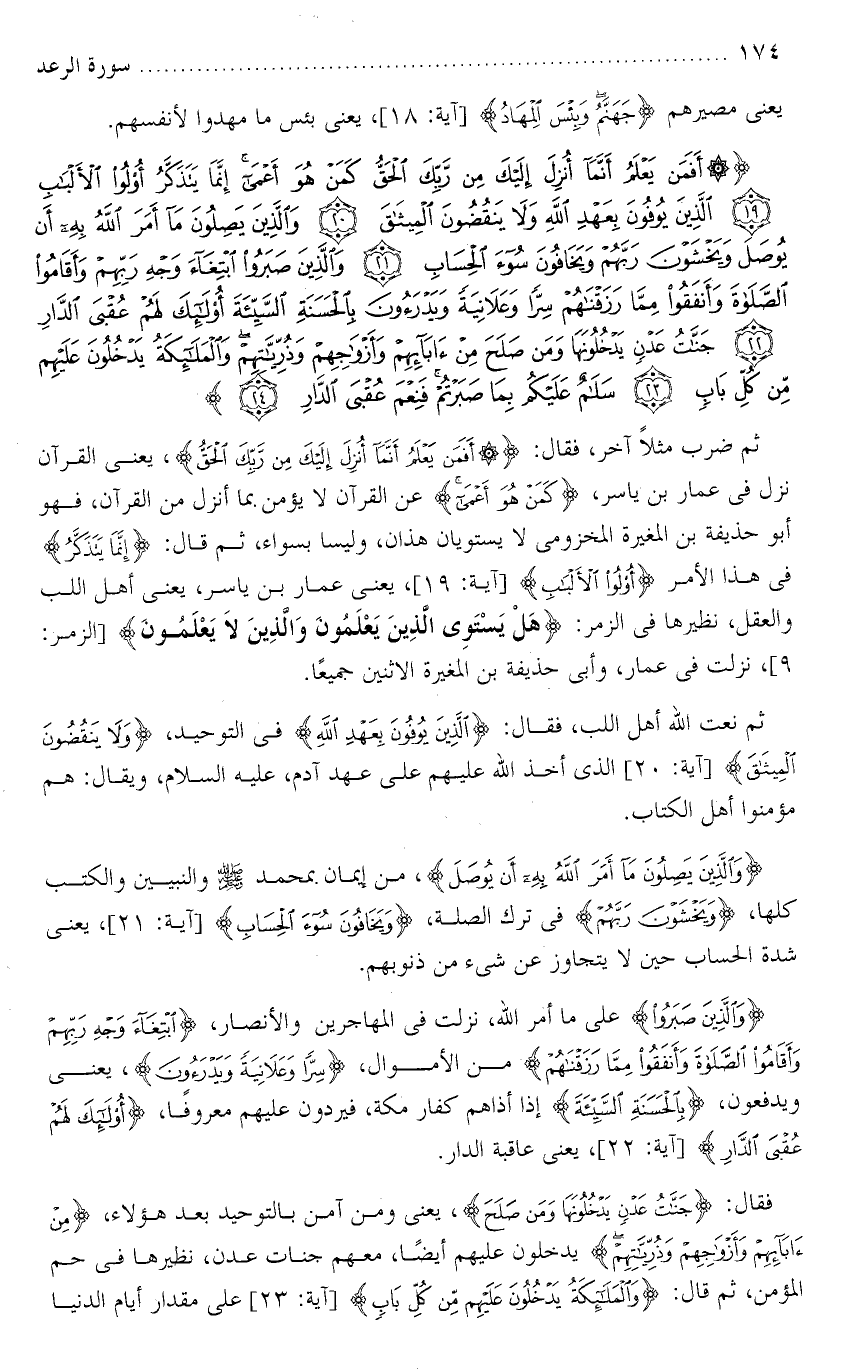 ١٧٤ ........................................................................ سورة الرعد
يعنى مصيرهم ﴿جَهَنَّمُ وَبِئْسَ ٱلْمِهَادُ﴾ [آية: ١٨]، يعنى بئس ما مهدوا لأنفسهم.
﴿۞ أَفَمَن يَعْلَمُ أَنَّمَآ أُنزِلَ إِلَيْكَ مِن رَّبِّكَ ٱلْحَقُّ كَمَنْ هُوَ أَعْمَىٰٓ ۚ إِنَّمَا يَتَذَكَّرُ أُو۟لُوا۟ ٱلْأَلْبَٰبِ
١٩ ٱلَّذِينَ يُوفُونَ بِعَهْدِ ٱللَّهِ وَلَا يَنقُضُونَ ٱلْمِيثَٰقَ ٢٠ وَٱلَّذِينَ يَصِلُونَ مَآ أَمَرَ ٱللَّهُ بِهِۦٓ أَن
يُوصَلَ وَيَخْشَوْنَ رَبَّهُمْ وَيَخَافُونَ سُوٓءَ ٱلْحِسَابِ ٢١ وَٱلَّذِينَ صَبَرُوا۟ ٱبْتِغَآءَ وَجْهِ رَبِّهِمْ وَأَقَامُوا۟
ٱلصَّلَوٰةَ وَأَنفَقُوا۟ مِمَّا رَزَقْنَٰهُمْ سِرًّا وَعَلَانِيَةً وَيَدْرَءُونَ بِٱلْحَسَنَةِ ٱلسَّيِّئَةَ أُو۟لَٰٓئِكَ لَهُمْ عُقْبَى ٱلدَّارِ
٢٢ جَنَّٰتُ عَدْنٍ يَدْخُلُونَهَا وَمَن صَلَحَ مِنْ ءَابَآئِهِمْ وَأَزْوَٰجِهِمْ وَذُرِّيَّٰتِهِمْ ۖ وَٱلْمَلَٰٓئِكَةُ يَدْخُلُونَ عَلَيْهِم
مِّن كُلِّ بَابٍ ٢٣ سَلَٰمٌ عَلَيْكُم بِمَا صَبَرْتُمْ ۚ فَنِعْمَ عُقْبَى ٱلدَّارِ ٢٤ ﴾
ثم ضرب مثلاً آخر، فقال: ﴿۞ أَفَمَن يَعْلَمُ أَنَّمَآ أُنزِلَ إِلَيْكَ مِن رَّبِّكَ ٱلْحَقُّ﴾، يعنى القرآن
نزل فى عمار بن ياسر، ﴿كَمَنْ هُوَ أَعْمَىٰٓ ۚ﴾ عن القرآن لا يؤمن بما أنزل من القرآن، فهو
أبو حذيفة بن المغيرة المخزومى لا يستويان هذان، وليسا بسواء، ثم قال: ﴿إِنَّمَا يَتَذَكَّرُ﴾
فى هذا الأمر ﴿أُو۟لُوا۟ ٱلْأَلْبَٰبِ﴾ [آية: ١٩]، يعنى عمار بن ياسر، يعنى أهل اللب
والعقل، نظيرها فى الزمر: ﴿هَلْ يَسْتَوِى الَّذِينَ يَعْلَمُونَ وَالَّذِينَ لاَ يَعْلَمُونَ﴾ [الزمر:
٩]، نزلت فى عمار، وأبى حذيفة بن المغيرة الاثنين جميعًا.
ثم نعت الله أهل اللب، فقال: ﴿ٱلَّذِينَ يُوفُونَ بِعَهْدِ ٱللَّهِ﴾ فى التوحيد، ﴿وَلَا يَنقُضُونَ
ٱلْمِيثَٰقَ﴾ [آية: ٢٠] الذى أخذ الله عليهم على عهد آدم، عليه السلام، ويقال: هم
مؤمنوا أهل الكتاب.
﴿وَٱلَّذِينَ يَصِلُونَ مَآ أَمَرَ ٱللَّهُ بِهِۦٓ أَن يُوصَلَ﴾، من إيمان بمحمد ﷺ والنبيين والكتب
كلها، ﴿وَيَخْشَوْنَ رَبَّهُمْ﴾ فى ترك الصلة، ﴿وَيَخَافُونَ سُوٓءَ ٱلْحِسَابِ﴾ [آية: ٢١]، يعنى
شدة الحساب حين لا يتجاوز عن شىء من ذنوبهم.
﴿وَٱلَّذِينَ صَبَرُوا۟﴾ على ما أمر الله، نزلت فى المهاجرين والأنصار، ﴿ٱبْتِغَآءَ وَجْهِ رَبِّهِمْ
وَأَقَامُوا۟ ٱلصَّلَوٰةَ وَأَنفَقُوا۟ مِمَّا رَزَقْنَٰهُمْ﴾ من الأموال، ﴿سِرًّا وَعَلَانِيَةً وَيَدْرَءُونَ﴾، يعنى
ويدفعون، ﴿بِٱلْحَسَنَةِ ٱلسَّيِّئَةَ﴾ إذا أذاهم كفار مكة، فيردون عليهم معروفًا، ﴿أُو۟لَٰٓئِكَ لَهُمْ
عُقْبَى ٱلدَّارِ﴾ [آية: ٢٢]، يعنى عاقبة الدار.
فقال: ﴿جَنَّٰتُ عَدْنٍ يَدْخُلُونَهَا وَمَن صَلَحَ﴾، يعنى ومن آمن بالتوحيد بعد هؤلاء، ﴿مِنْ
ءَابَآئِهِمْ وَأَزْوَٰجِهِمْ وَذُرِّيَّٰتِهِمْ ۖ﴾ يدخلون عليهم أيضًا، معهم جنات عدن، نظيرها فى حم
المؤمن، ثم قال: ﴿وَٱلْمَلَٰٓئِكَةُ يَدْخُلُونَ عَلَيْهِم مِّن كُلِّ بَابٍ﴾ [آية: ٢٣] على مقدار أيام الدنيا